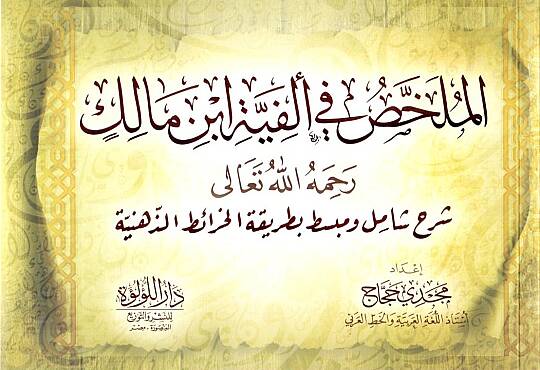 المُلَخَّصُ فِي أَلْفِيَّةِ ابْنِ مَالِكٍ
رَحِمَهُ اللهُ تَعَالَى
شرح شامل ومبسط بطريقة الخرائط الذّهنيّة
إعْدَاد
مَجْدِي حَجَّاج
أُسْتَاذُ اللُّغَةِ العَرَبِيَّةِ وَالخَطِّ العَرَبِيِّ
دَارُ اللُّؤْلُؤَة
للنَّشْرِ وَالتَّوْزِيع
المنصورة - مصر